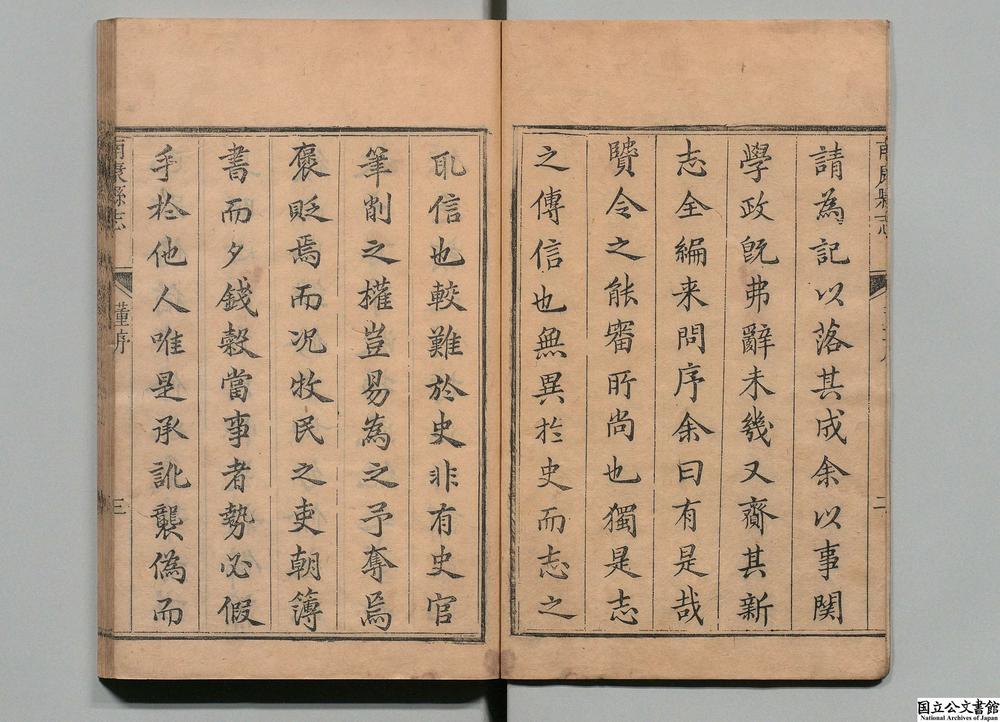 請為記以落其成余以事関
學政旣弗辭未幾又齎其新
志全編来問序余曰有是哉
賢令之能審所尚也獨是志
之傳信也無異於史而志之
取信也較難於史非有史官
筆削之權豈易為之予奪焉
褒貶焉而况牧民之吏朝簿
書而夕錢穀當事者勢必假
手於他人唯是承訛襲偽而
南康縣志
董序
三
国立公文書館
National Archives of Japan